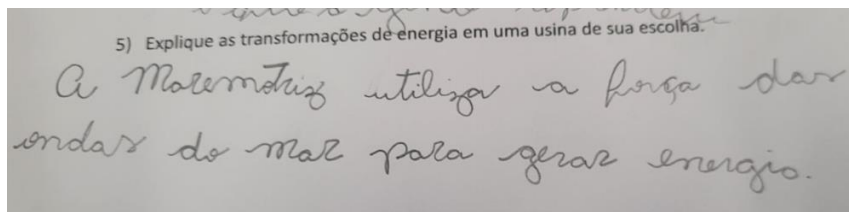 5) Explique as transformações de energia em uma usina de sua escolha.
A Maremotriz utiliza a força das
ondas do mar para gerar energia.